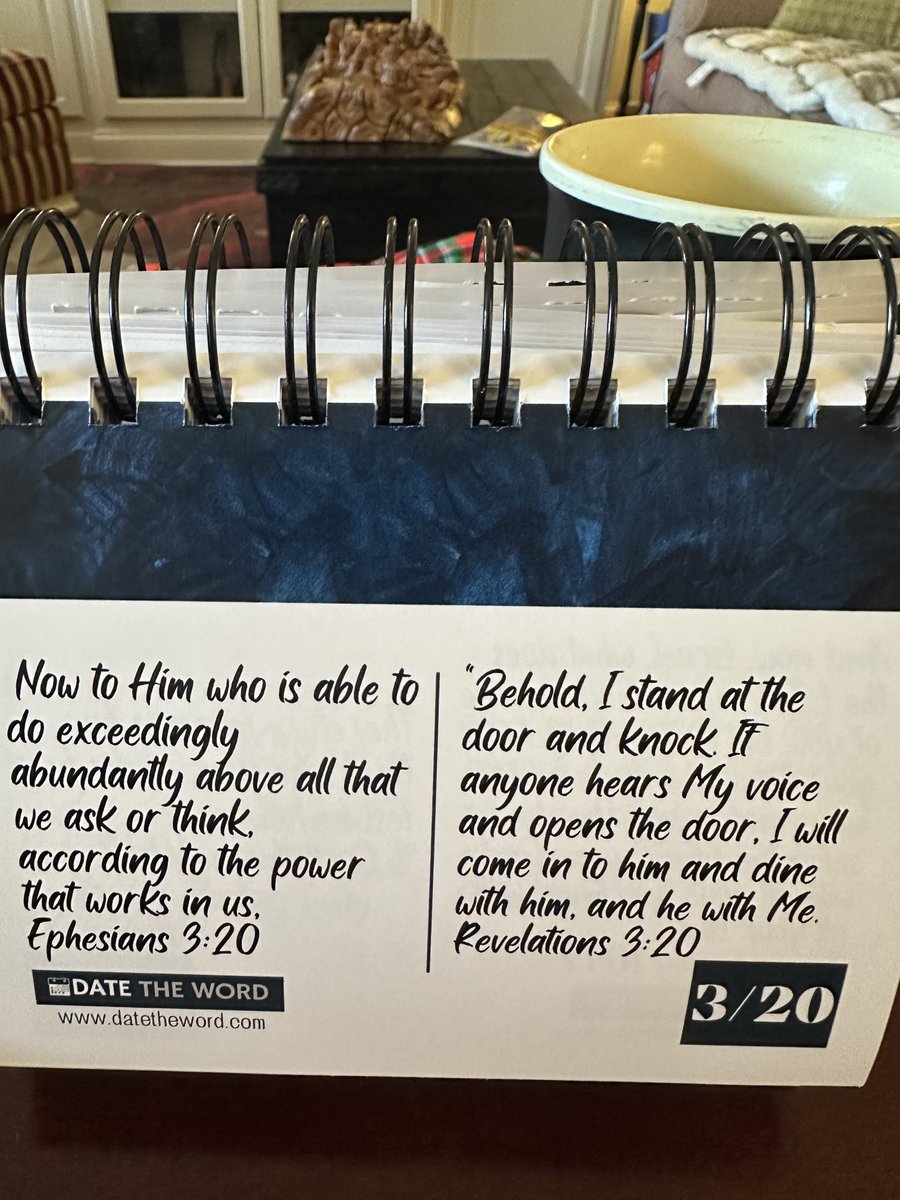 Now to Him who is able to
do exceedingly
abundantly above all that
we ask or think,
according to the power
that works in us,
Ephesians 3:20
DATE THE WORD
www.datetheword.com
"Behold, I stand at the
door and knock. If
anyone hears My voice
and opens the door, I will
come in to him and dine
with him, and he with Me.
Revelations 3:20
3/20